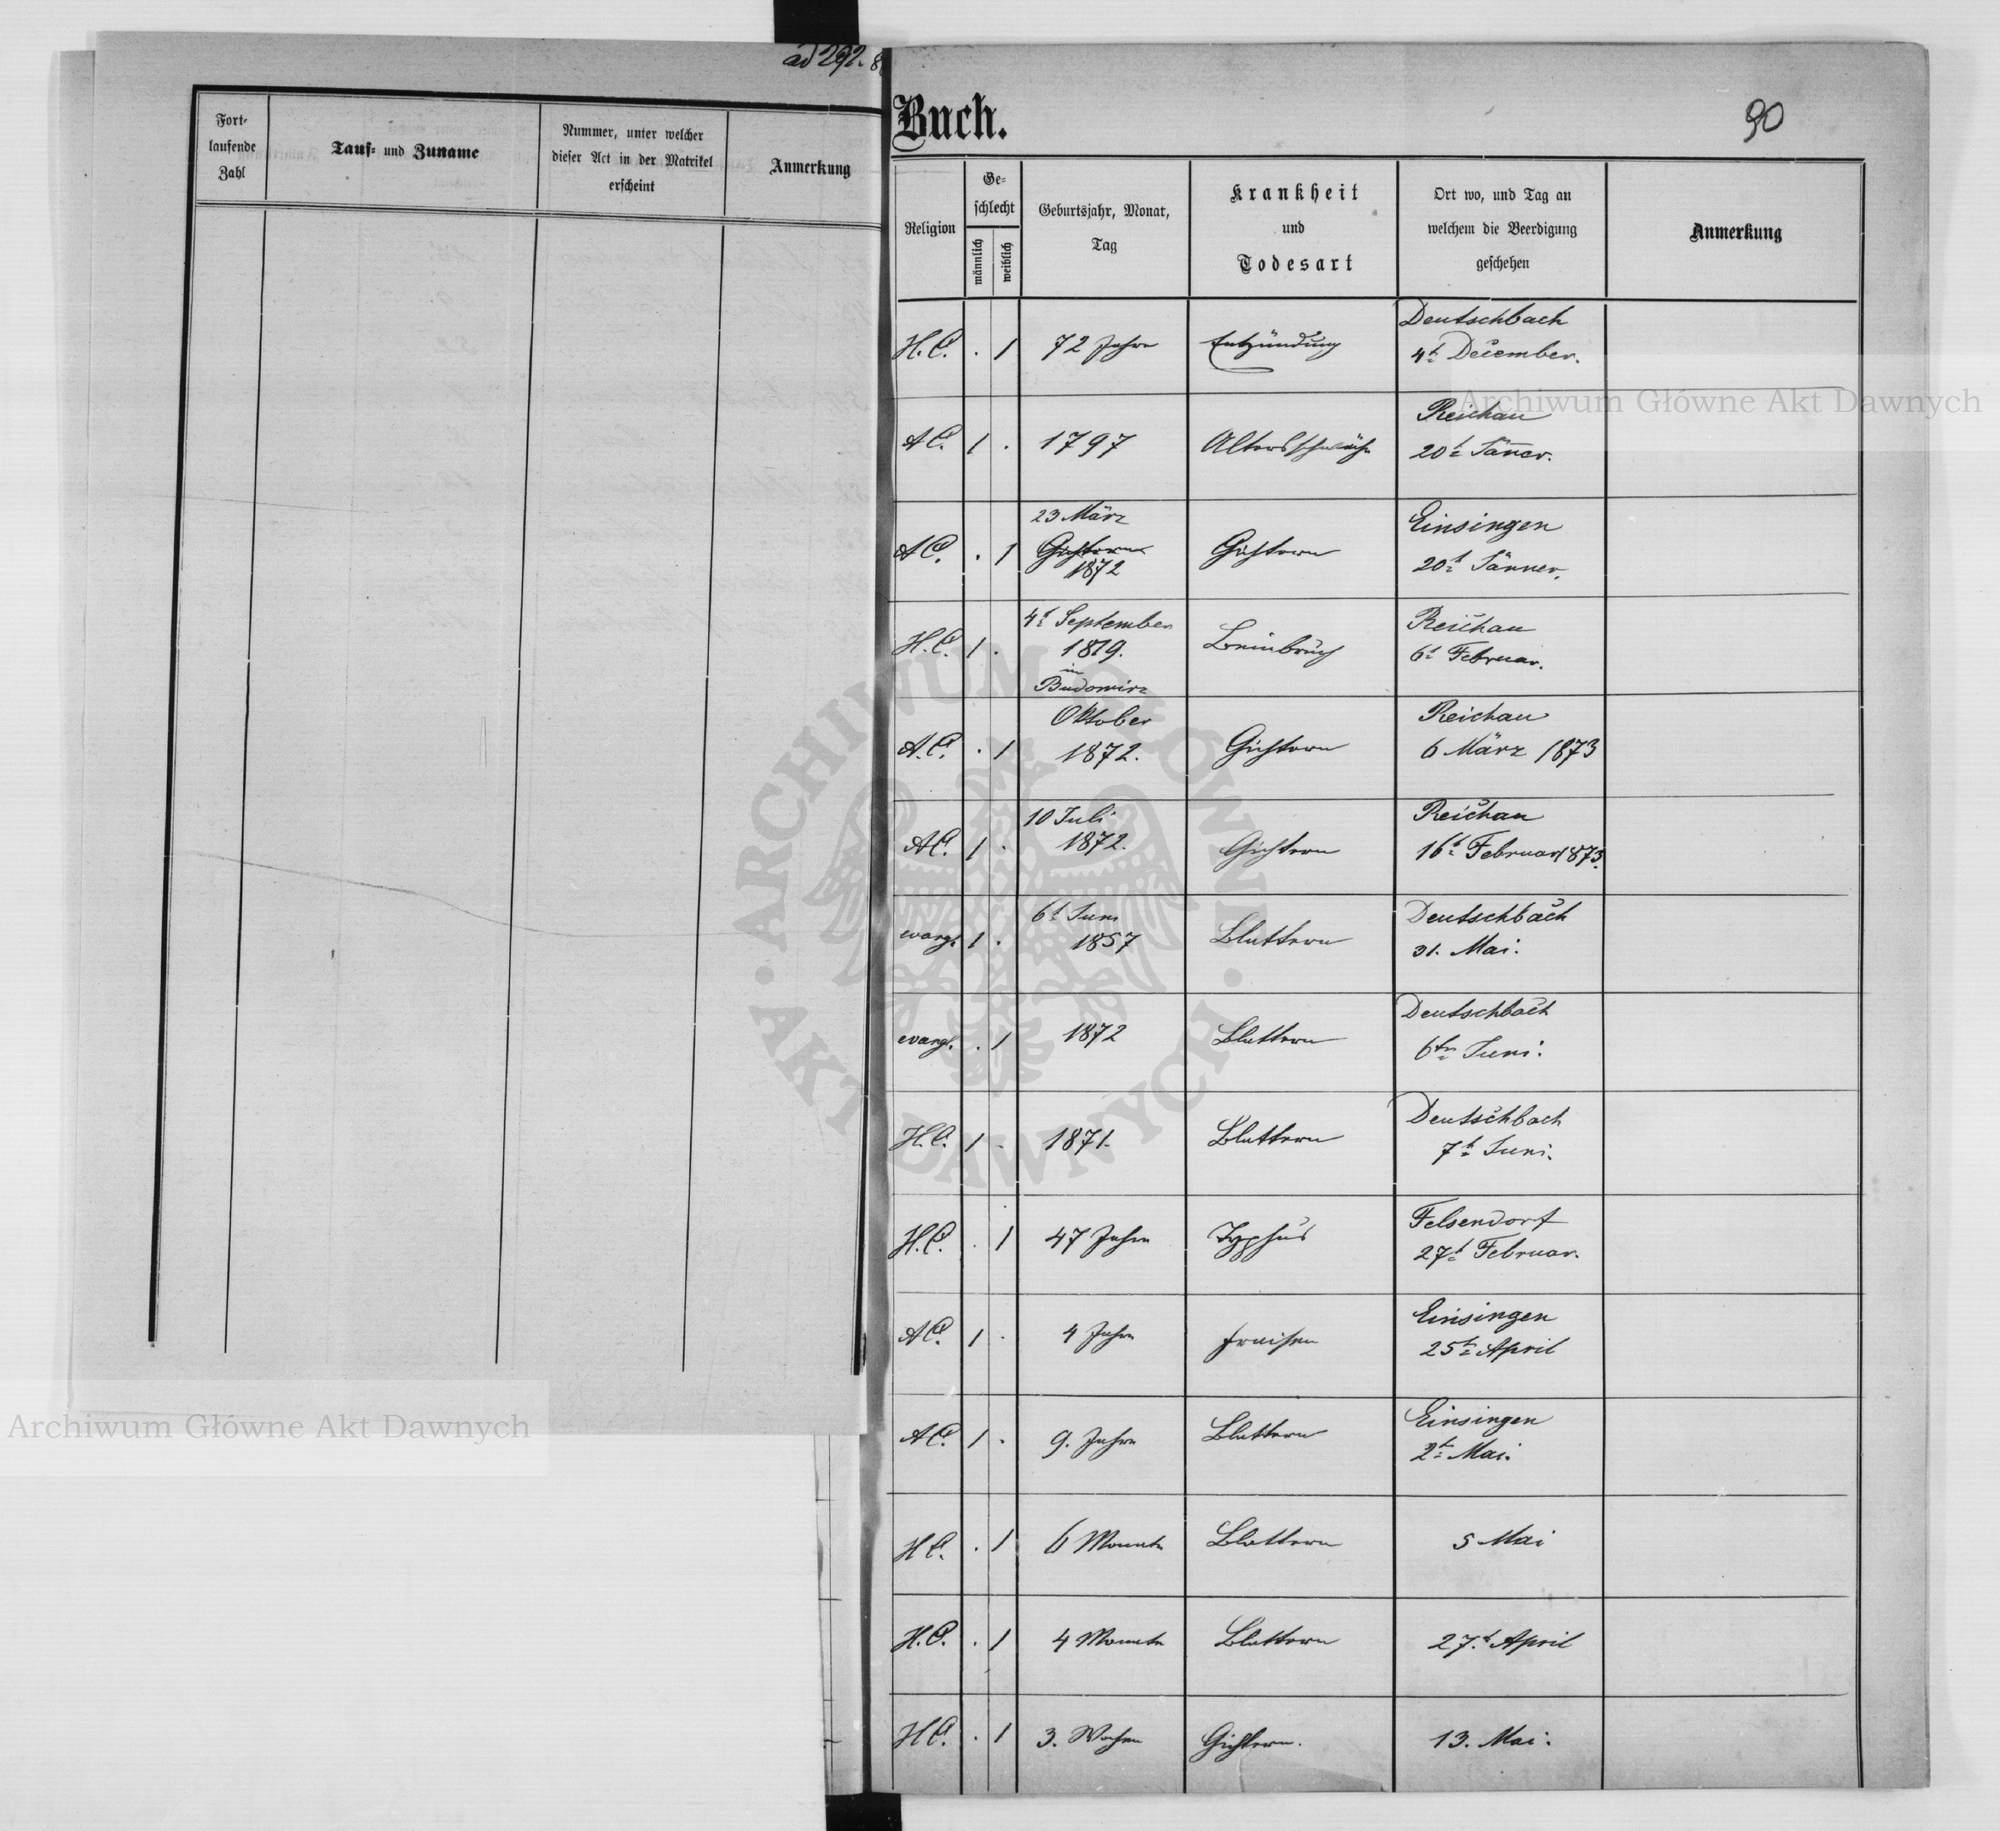 ad 292. 8
Fort-
laufende
Zahl
Tauf- und Zuname
Nummer, unter welcher
dieser Act in der Matrikel
erscheint
Anmerkung
Buch.
90
Religion
Ge-
schlecht
männlich
weiblich
Geburtsjahr, Monat,
Tag
Krankheit
und
Todesart
Ort wo, und Tag an
welchem die Beerdigung
geschehen
Anmerkung
Deutschbach
H. C. . 1 72 Jahre Entzündung 4t December.
Reichau
A C. 1 . 1797 Altersschwäche 20t Jäner.
23 März Einsingen
A C. . 1 Gichtern Gichtern
1872 20t Jänner.
4t September Reichau
H. C. 1 . 1819. Beinbruch 6t Februar.
in
Budomirz
Oktober Reichau
A. C. . 1 1872. Gichtern 6 März 1873
10 Juli Reichau
A C. 1 . 1872. Gichtern 16t Februar 1873.
6t Juni Deutschbach
evangl. 1 . 1857 Blattern 31. Mai.
Deutschbach
evangl. . 1 1872 Blattern 6ten Juni.
Deutschbach
H. C. 1 . 1871. Blattern 7t Juni.
Felsendorf
H. C. . 1 47 Jahre Typhus 27t Februar.
Einsingen
A C. 1 . 4 Jahre Fraisen 25t April
Einsingen
A C. 1 . 9. Jahre Blattern 2t Mai.
H C. . 1 6 Monate Blattern 5 Mai
H. C. . 1 4 Monate Blattern 27.t April
H C. . 1 3. Wochen Gichtern. 13. Mai.
Archiwum Główne Akt Dawnych
ARCHIWUM GŁÓWNE · AKT DAWNYCH ·
Archiwum Główne Akt Dawnych